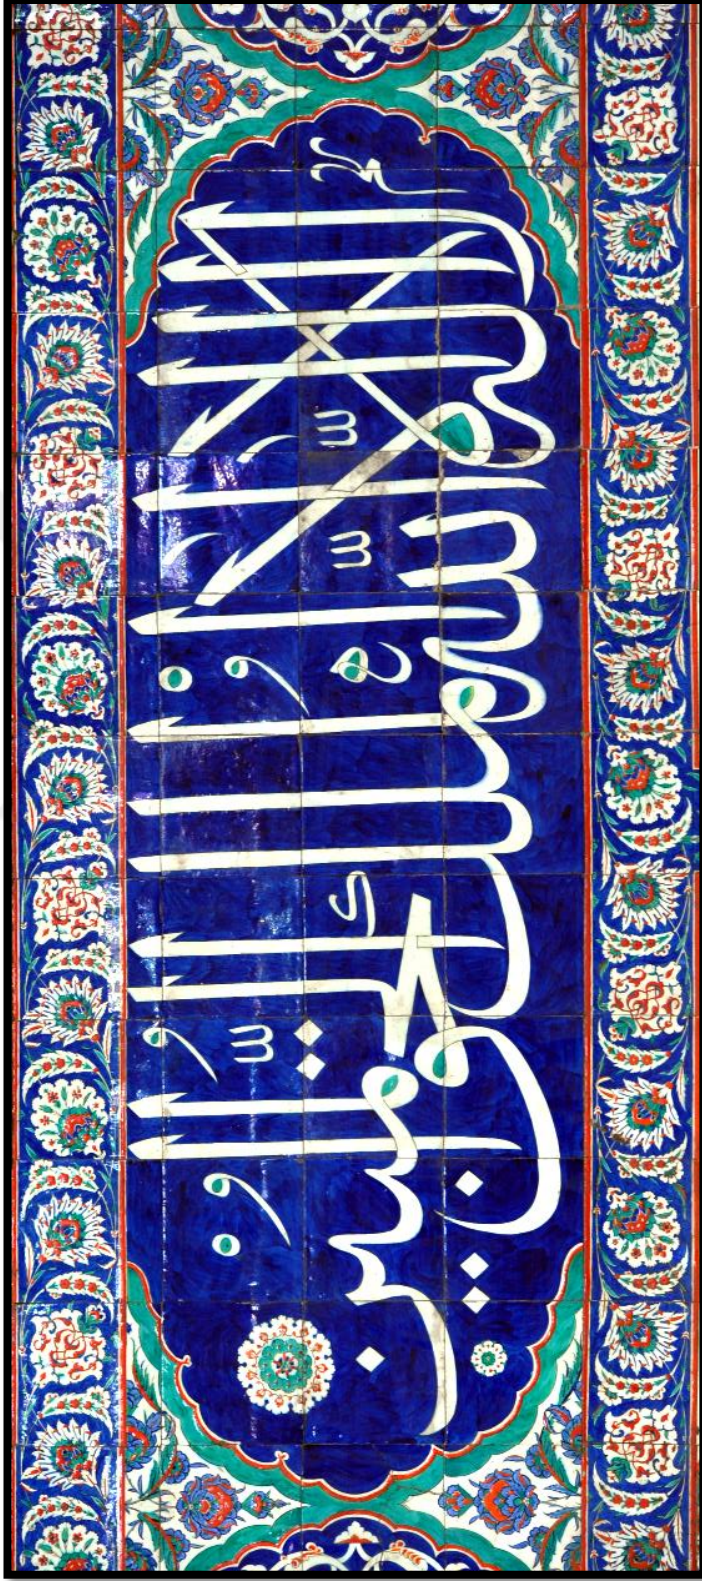 لا إله إلا الله الملك الحق المبين